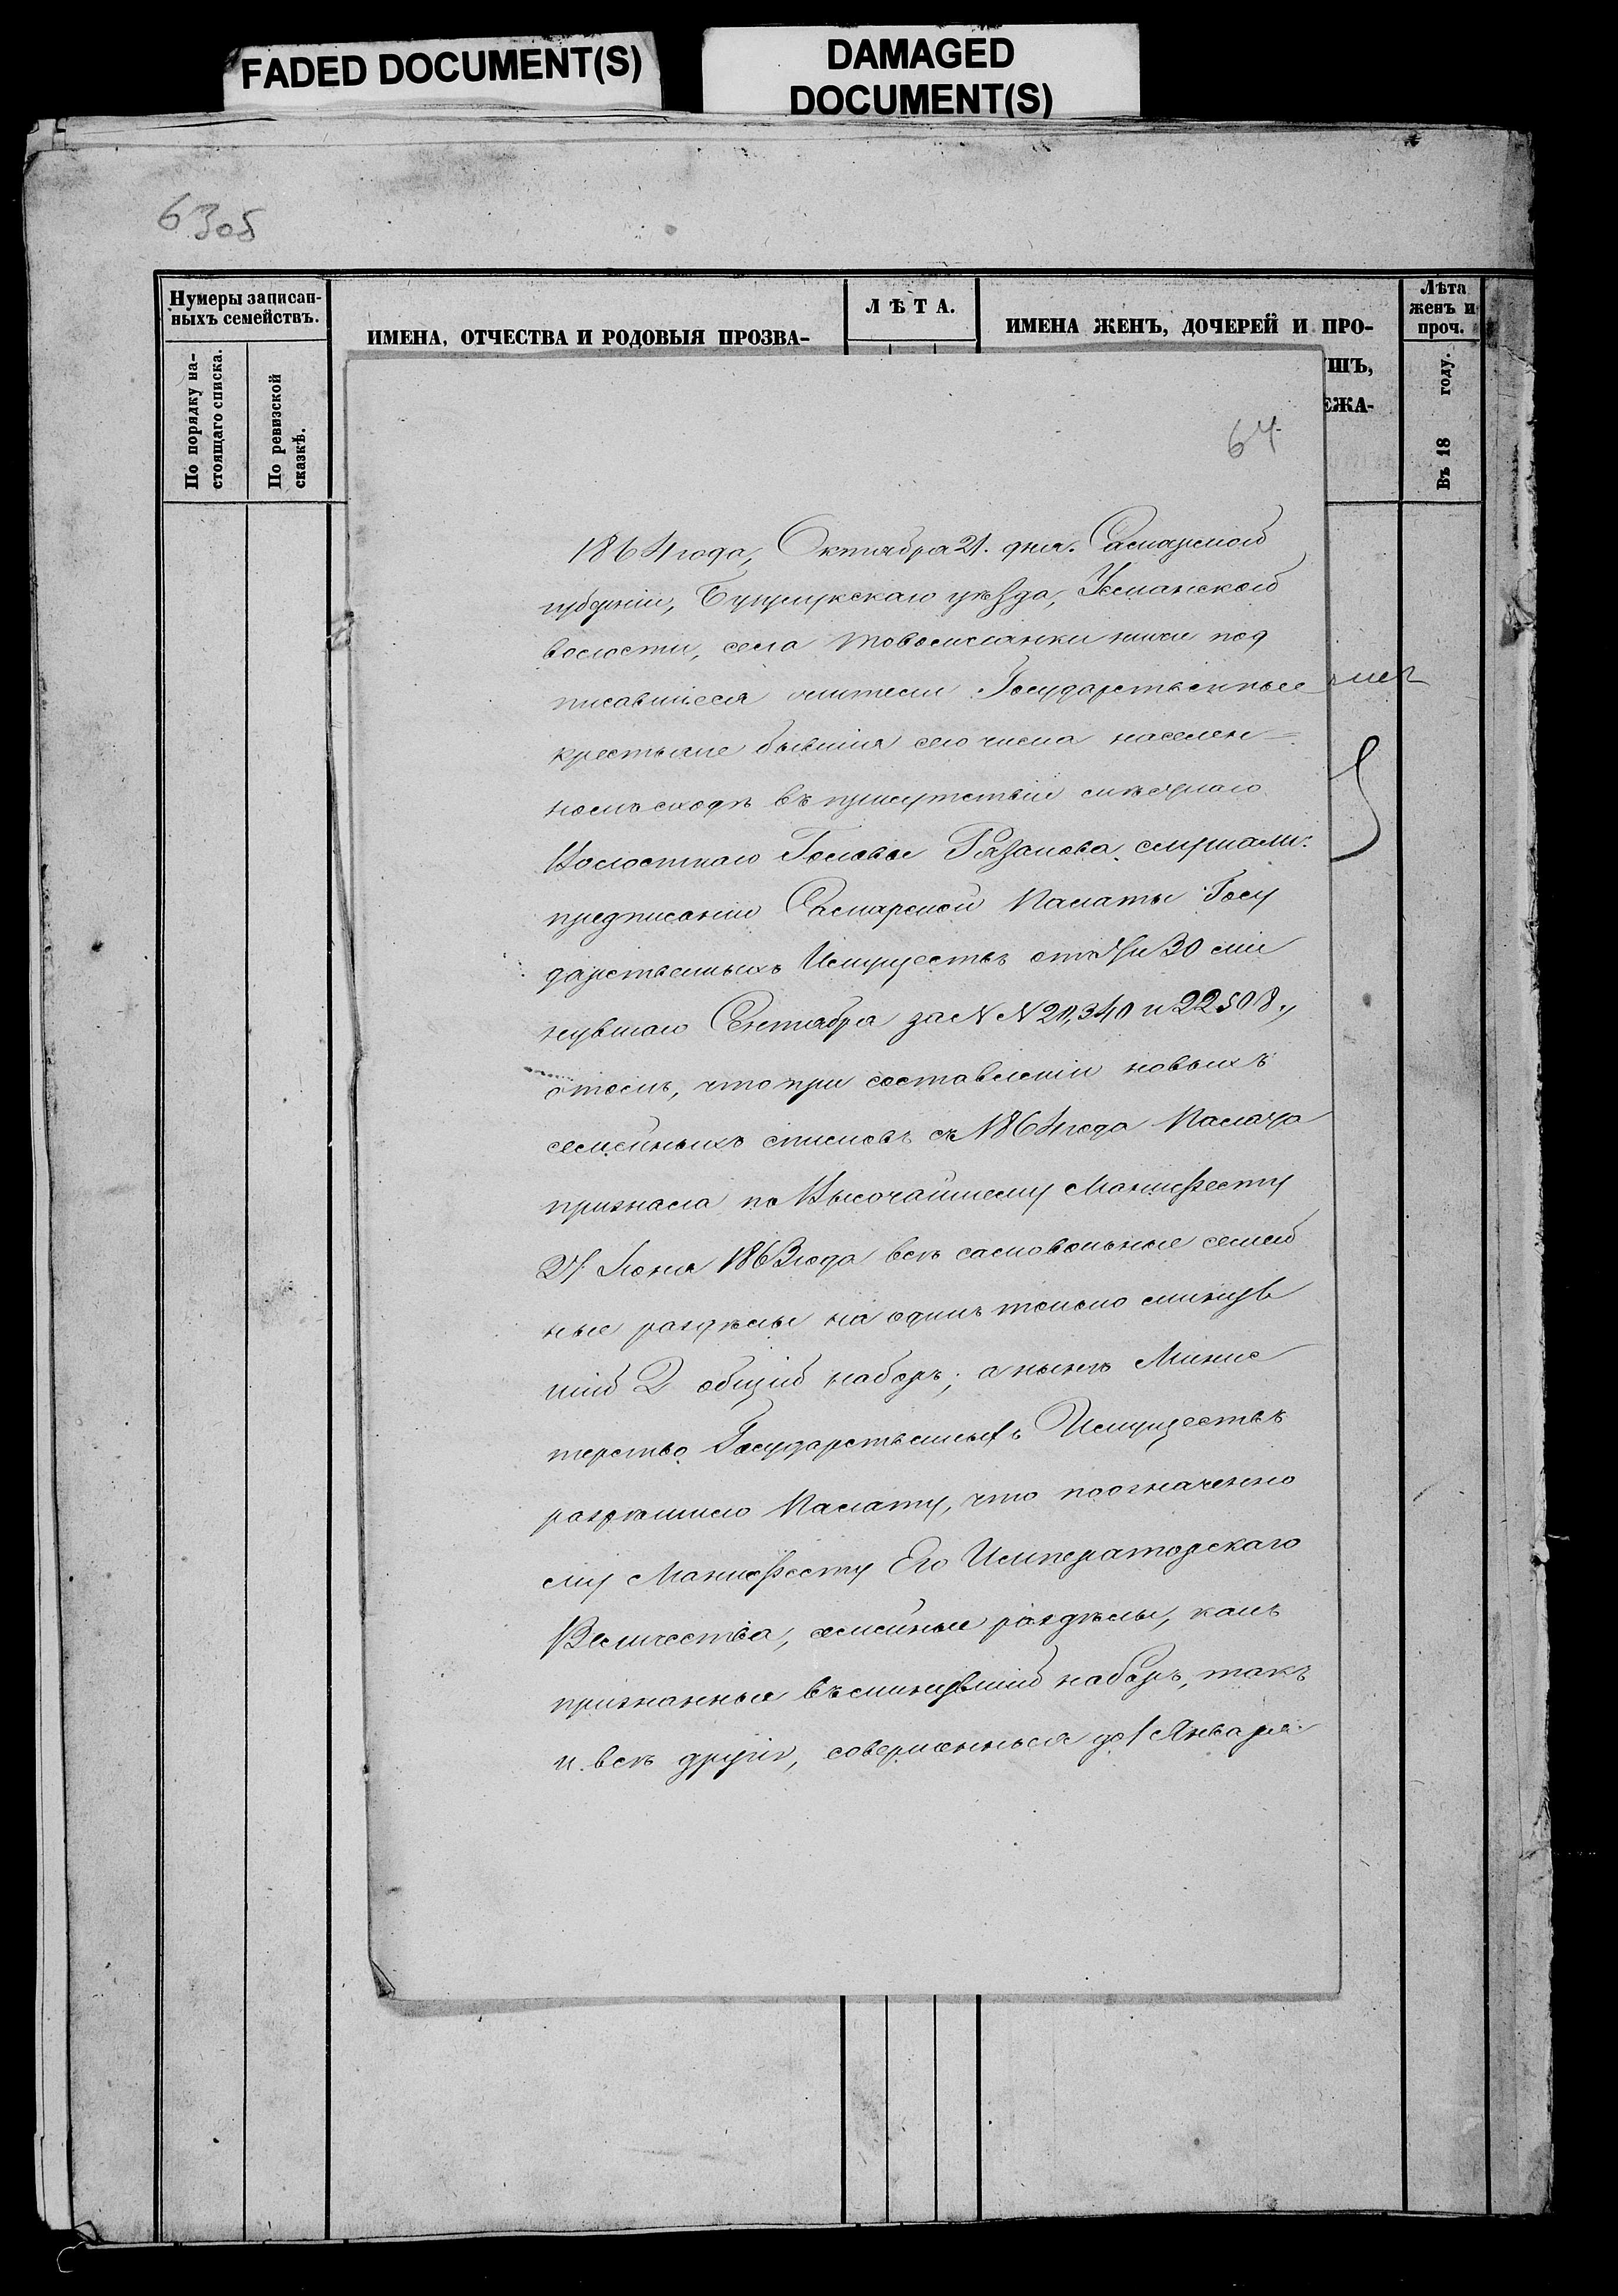 FADED DOCUMENT(S)
DAMAGED
DOCUMENT(S)
6305
Нумеры записан-
ныхъ семействъ.
По порядку на-
стоящаго списка.
По ревизской
сказкѣ.
ИМЕНА, ОТЧЕСТВА И РОДОВЫЯ ПРОЗВА-
ЛѢТА.
ИМЕНА ЖЕНЪ, ДОЧЕРЕЙ И ПРО-
ИШЪ,
ЕЖА-
Лѣта
женъ и
проч.
Въ 18 году.
64
1864 года, Октября 21. дня. Самарской
губерніи, Бузулукскаго уѣзда, Усманской
волости, села ниже под
писавшіеся жители Государственные
крестьяне бывшіи сего числа на селен=
номъ сходѣ въ присутствіи мѣстнаго
Волостнаго Головы Рязанова слушали:
предписаніи Самарской Палаты Госу
дарственныхъ Имуществъ отъ и 30 ми
нувшаго Сентября за N N 20,340 и 22508,
о томъ, что при составленіи новыхъ
семейныхъ списковъ съ 1864 года Палата
признала по Высочайшему Манифесту
27 Іюня 1863 года всѣ самовольные семей
ные раздѣлы на одинъ только минув
шій 2 общій наборъ; а нынѣ Минис
терство Государственныхъ Имуществъ
разрѣшило Палату, что по означенно
му Манифесту Его Императорскаго
Величества, семейные раздѣлы, какъ
признанные въ минувшій наборъ, такъ
и всѣ другіе, совершенныя до 1 Января